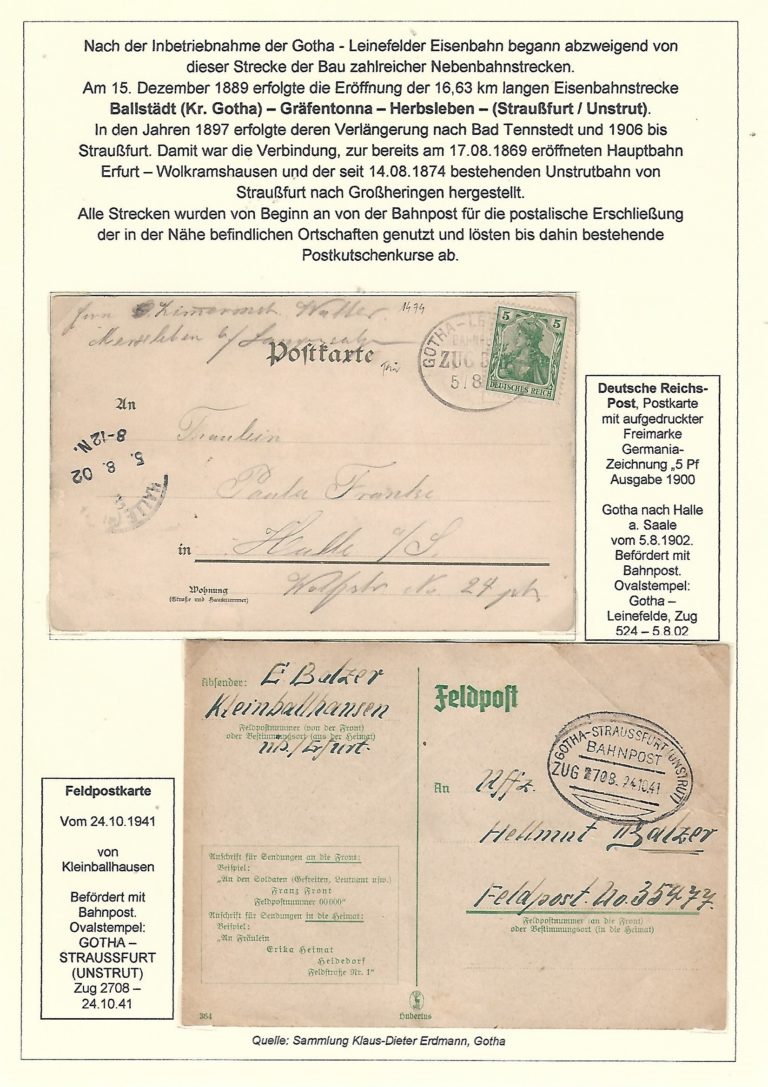 Nach der Inbetriebnahme der Gotha - Leinefelder Eisenbahn begann abzweigend von
dieser Strecke der Bau zahlreicher Nebenbahnstrecken.
Am 15. Dezember 1889 erfolgte die Eröffnung der 16,63 km langen Eisenbahnstrecke
Ballstädt (Kr. Gotha) – Gräfentonna – Herbsleben – (Straußfurt / Unstrut).
In den Jahren 1897 erfolgte deren Verlängerung nach Bad Tennstedt und 1906 bis
Straußfurt. Damit war die Verbindung, zur bereits am 17.08.1869 eröffneten Hauptbahn
Erfurt – Wolkramshausen und der seit 14.08.1874 bestehenden Unstrutbahn von
Straußfurt nach Großheringen hergestellt.
Alle Strecken wurden von Beginn an von der Bahnpost für die postalische Erschließung
der in der Nähe befindlichen Ortschaften genutzt und lösten bis dahin bestehende
Postkutschenkurse ab.
1474
Postkarte
GOTHA-LE
ZUG 5
5.8
5 5
DEUTSCHES REICH
An
Fräulein
Paula Franke
in Halle a/S.
Wohnung
(Straße und Hausnummer)
Wolfstr No 24
HALLE
5. 8. 02
8-12 N.
Deutsche Reichs-
Post, Postkarte
mit aufgedruckter
Freimarke
Germania-
Zeichnung „5 Pf
Ausgabe 1900
Gotha nach Halle
a. Saale
vom 5.8.1902.
Befördert mit
Bahnpost.
Ovalstempel:
Gotha –
Leinefelde, Zug
524 – 5.8.02
Absender: E Balzer
Kleinballhausen
Feldpostnummer (von der Front)
oder Bestimmungsort (aus der Heimat)
üb./Erfurt.
Feldpost
GOTHA-STRAUSSFURT (UNSTRUT)
BAHNPOST
ZUG 2708. 24.10.41
An Uffz.
Hellmut Balzer
Feldpost. No. 35477.
Feldpostnummer (an die Front)
oder Bestimmungsort (in die Heimat)
Anschrift für Sendungen an die Front:
Beispiel:
"An den Soldaten (Gefreiten, Leutnant usw.)
Franz Front
Feldpostnummer 00000"
Anschrift für Sendungen in die Heimat:
Beispiel:
"An Fräulein
Erika Heimat
Heidedorf
Feldstraße Nr. 1"
364
Hubertus
Feldpostkarte
Vom 24.10.1941
von
Kleinballhausen
Befördert mit
Bahnpost.
Ovalstempel:
GOTHA –
STRAUSSFURT
(UNSTRUT)
Zug 2708 –
24.10.41
Quelle: Sammlung Klaus-Dieter Erdmann, Gotha